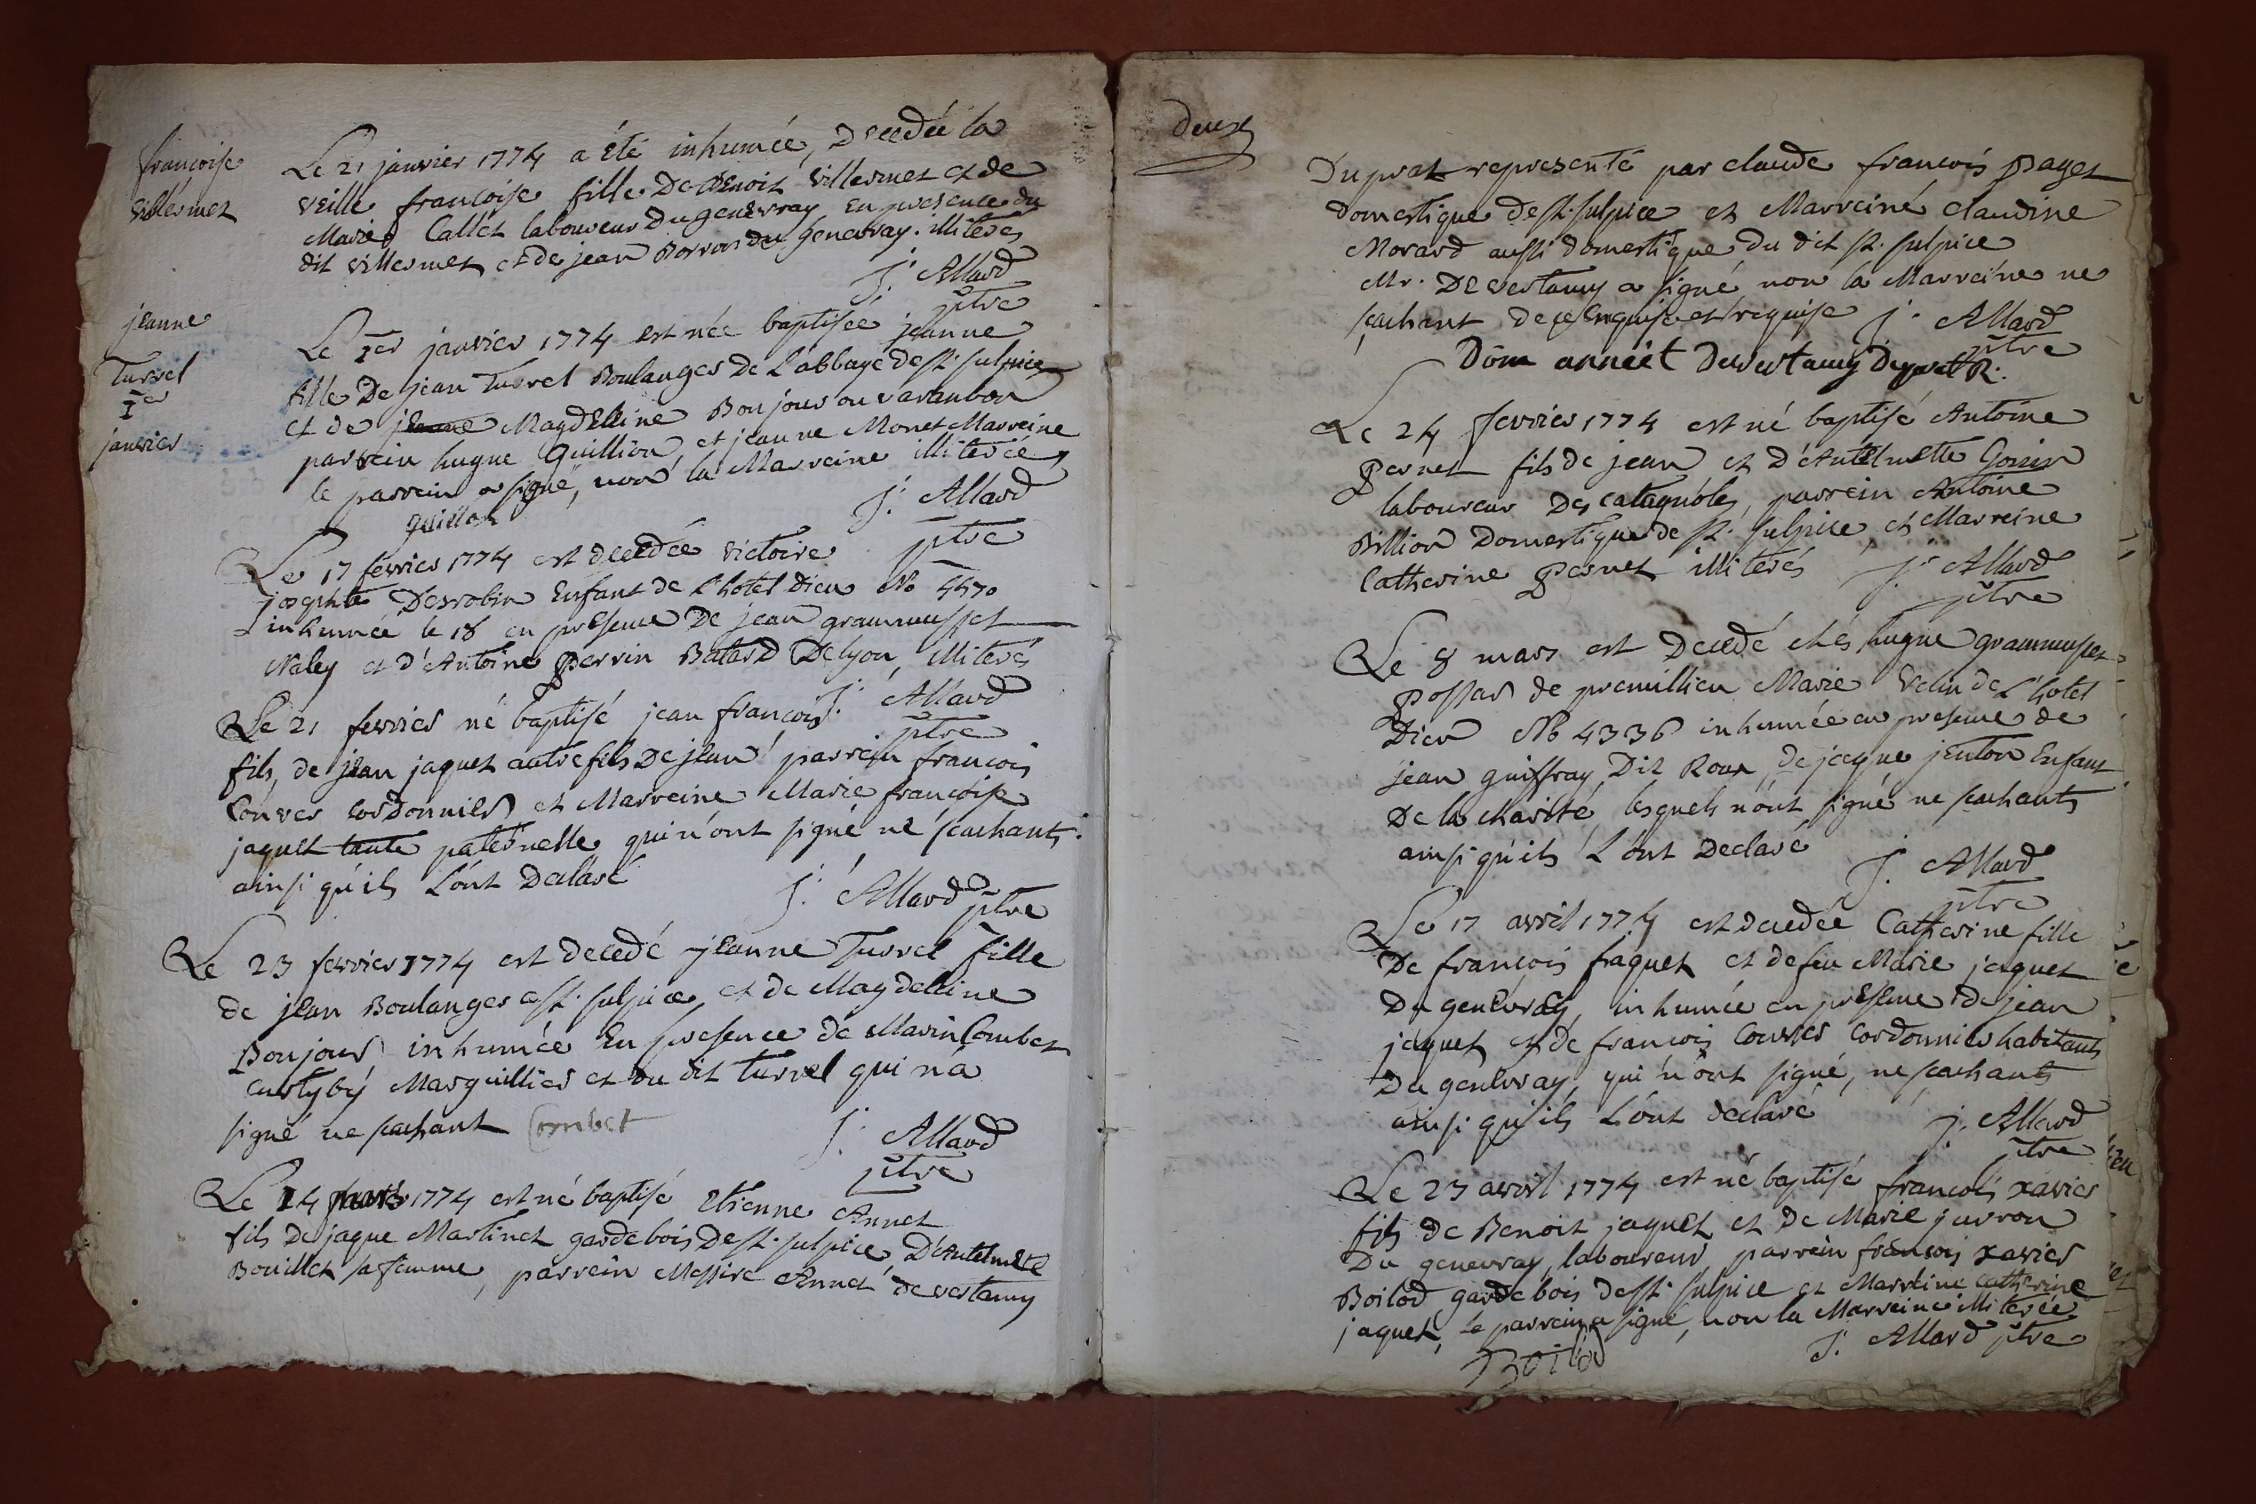 françoise
villermet
Le 21 janvier 1774 a été inhumée, decedée la
veille françoise fille De Benoit villermet et de
Marie Callet laboureur Du genevray en presence du
dit villermet et de jean Borron du genevray. illiterés
J. Allard
ptre
jeanne
Turrel
1er
janvier
Le 1er janvier 1774 est née baptisée jeanne
fille De jean Turrel Boulanger De L'abbaye de st. sulpice
et de jeanne Magdelline Bonjour ou varambon
parrein hugue Guillion, et jeanne Monet Marreine
le parrein a signé, non la Marreine illiterée,
guillon
J. Allard
ptre
Le 17 fevrier 1774 est decedée victoire
josephte Desrobin Enfant de L'hotel Dieu No 4470
inhumée le 18 en presence De jean grammusset
Naley et d'Antoine Perrin Batard De lyon, illiterés
J. Allard
ptre
Le 21 fevrier né baptisé jean françois
fils, de jean jaquet autre fils De jean, parrein francois
Couver cordonnier et Marreine Marie françoise
jaquet tante paternelle qui n'ont signé ne sachants
ainsi qu'ils L'ont Declaré
J. Allard ptre
Le 23 fevrier 1774 est decedé jeanne Turrel fille
de jean Boulanger a st. sulpice, et de Magdelline
Bonjour inhumée En presence de Marin Combet
Marguillier et du dit turrel qui n'a
signé ne sachant Combet
J. Allard
ptre
Le 24 1774 est né baptisé Etienne Annet
fils De jaque Martinet gardebois De st. sulpice, D'Antelmette
Bouillet sa femme, parrein Messire Annet de vertamy
deux
Duprat representé par claude francois Paget
domestique de st. sulpice et Marreine claudine
Morard aussi domestique du dit st. sulpice
Mr. De vertamy a signé non la Marreine ne
sachant de ce enquise et requise
J. Allard
ptre
Dom annet Devertamy Duprat R.
Le 24 fevrier 1774 est né baptisé Antoine
Pernet fils de jean et d'Antelmette Goiin
laboureur Des catagnoles, parrein Antoine
Billion Domestique de st. sulpice et Marreine
Catherine Pernet illiterés
J. Allard
ptre
Le 8 mars est Decedé chés hugue grammusset
Possar de premillieu Marie Velin de L'hotel
Dieu No 4336 inhumée en presence de
jean guiffray Dit Roux, de jacque jenton Enfant
De la charité, lesquels n'ont signé ne sachants
ainsi qu'ils L'ont Declaré
J. Allard
ptre
Le 17 avril 1774 est decedée Catherine fille
De francois fraquet et de feu Marie jaquet
Du genevray, inhumée en presence de jean
jaquet et de francois Couver cordonnier habitants
Du genevray, qui n'ont signé, ne sachants
ainsi qu'ils L'ont declaré
J. Allard
ptre
Le 23 avril 1774 est né baptisé francois xavier
fils de Benoit jaquet et de Marie jurron
Du genevray, laboureur, parrein francois xavier
Boilod gardebois de st. sulpice et Marreine catherine
jaquet, le parrein a signé, non la Marreine illiterée
Boilod
J. Allard ptre